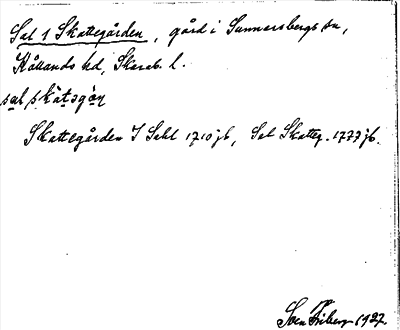 Sal 1 Skattegården, gård i Sunnersbergs sn,
Kållands hd, Skarab. l.
sal skàtəgɑ̀ɳ
Skattegården I Sahl 1710 jb, Sal Skatteg. 1777 jb.
Sven Friberg 1927.